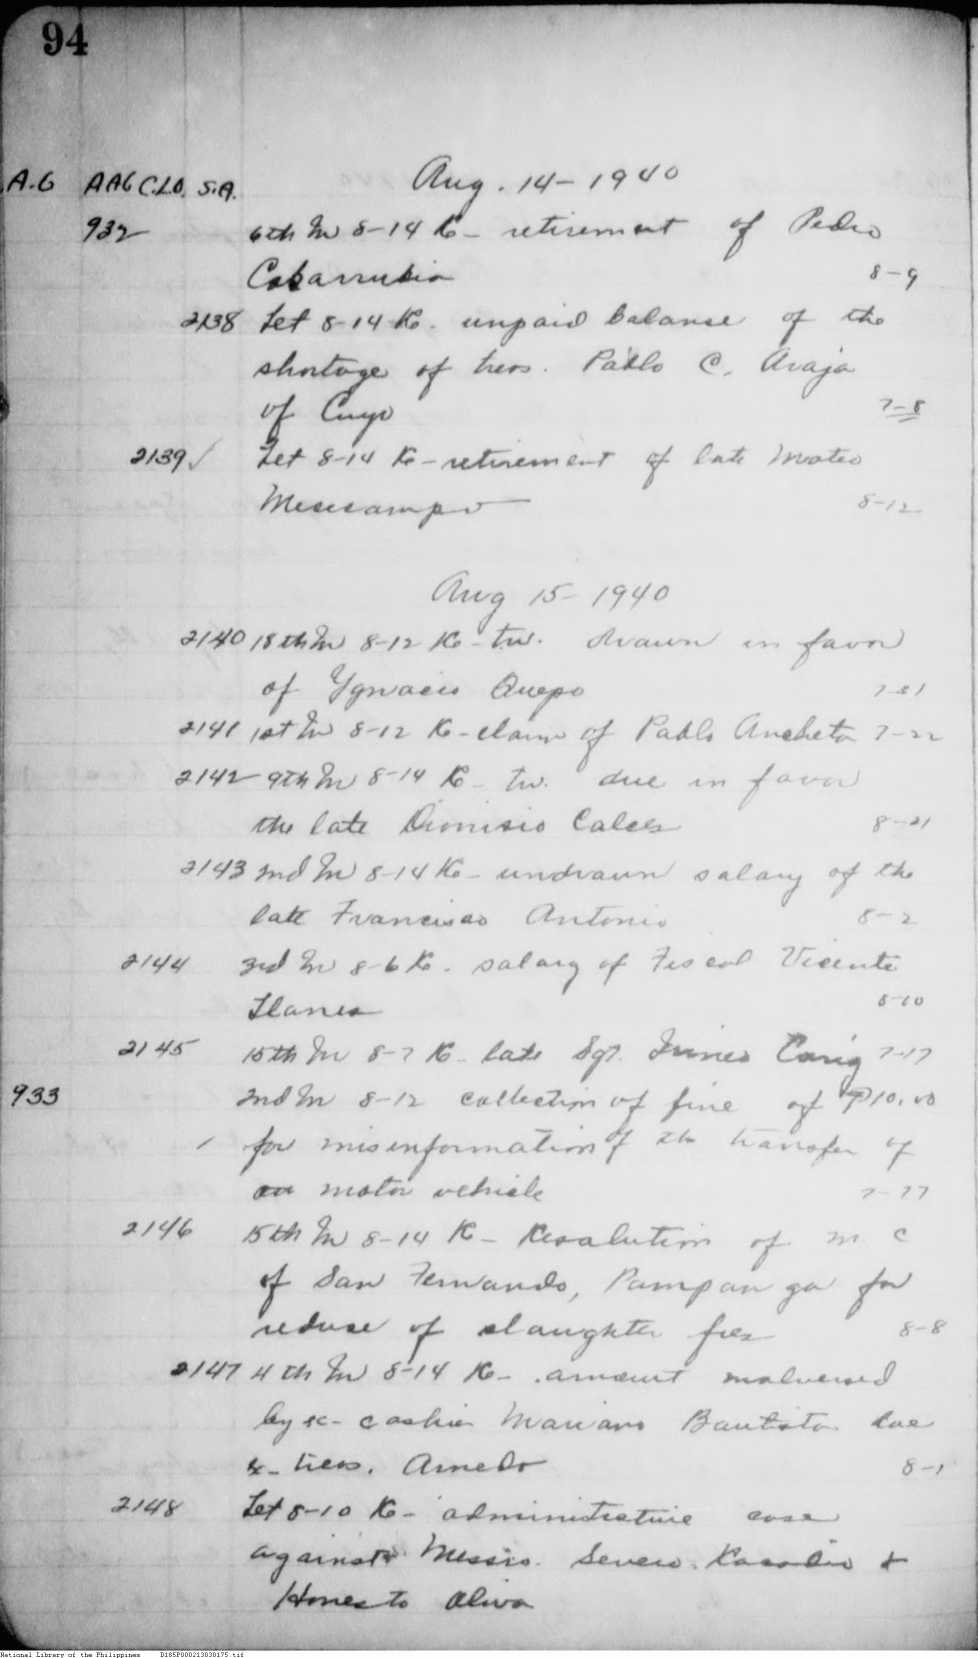 94
A.G AAG C.L.O. S.A.
Aug. 14 - 1940
932 6th In 8-14 K - retirement of Pedro
Cabarrubia 8-9
2138 Let 8-14 K. unpaid balanse of the
shortage of treas. Pablo C. Araja
of Cuyo 7-8
2139 ✓ Let 8-14 K - retirement of late Mateo
8-12
Aug 15 - 1940
2140 18th In 8-12 K - tw. drawn in favor
of Ygnacio Quepo 7-31
2141 1st In 8-12 K - claim of Pablo Ancheta 7-22
2142 9th In 8-14 K - tw. due in favor
the late Dionisio Calces 8-21
2143 2nd In 8-14 K - undrawn salary of the
late Francisco Antonio 8-2
2144 3rd In 8-6 K. salary of Fiscal Vicente
Llanes 8-10
2145 15th In 8-7 K - late Sgt. Irineo Carig 7-17
933 2nd In 8-12 collection of fine of ₱10.00
for misinformation of the transfer of
motor vehicle 7-77
2146 15th In 8-14 K - Resolution of M C
of San Fernando, Pampanga for
reduse of slaughter fees 8-8
2147 4th In 8-14 K - amount malversed
by ex-cashier Mariano Bautista
ex-treas. Arnedo 8-1
2148 Let 8-10 K - administrative case
against Messrs. Severo &
Honesto Oliva
National Library of the Philippines D185P000213030175.tif